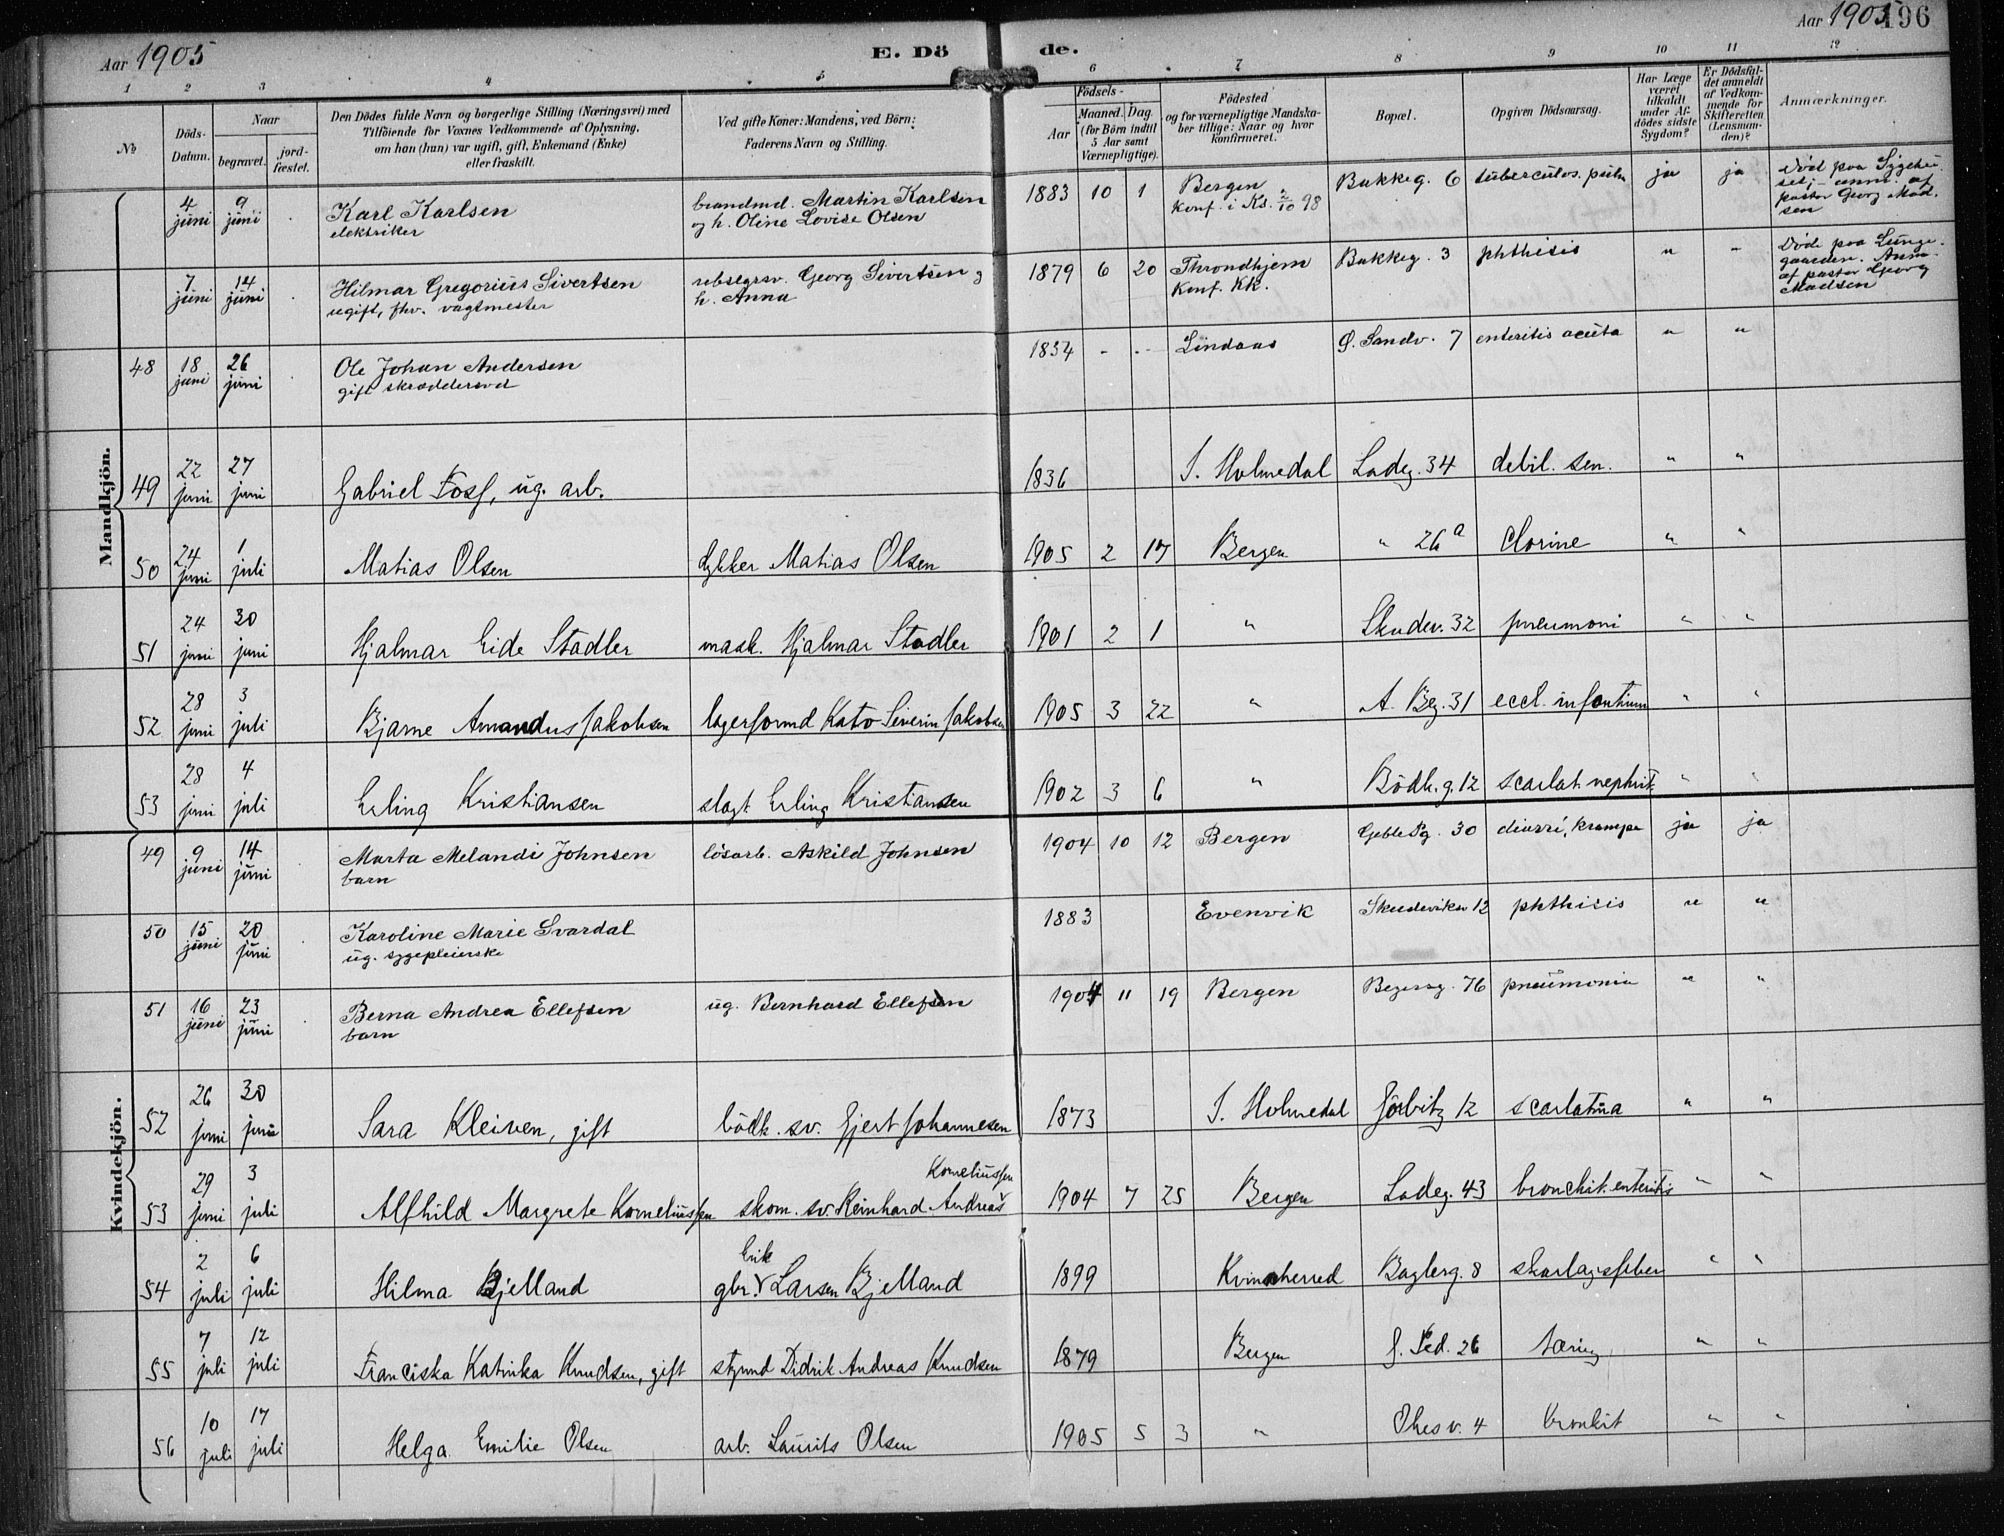 Aar 1905
E. Dö
de.
Aar 1905
196
1 2 3 4 5 6 7 8 9 10 11 12
No
Döds-Datum.
Naar
begravet.
jord-fæstet.
Den Dödes fulde Navn og borgerlige Stilling (Næringsvei) med
Tilföiende for Voxnes Vedkommende af Oplysning,
om han (hun) var ugift, gift, Enkemand (Enke)
eller fraskilt.
Ved gifte Koner: Mandens, ved Börn:
Faderens Navn og Stilling.
Födsels-
Aar
Maaned. Dag.
(for Börn indtil
5 Aar samt
Værnepligtige).
Födested
og for værnepligtige Mandska-
ber tillige: Naar og hvor
konfirmeret.
Bopæl.
Opgiven Dödsaarsag.
Har Læge
været
tilkaldt
under Af-
dödes sidste
Sygdom?
Er Dödsfal-
det anmeldt
af Vedkom-
mende for
Skifteretten
(Lensman-
den)?
Anmærkninger.
Mandkjön.
4 juni 9 juni Karl Karlsen elektriker brandmd. Martin Karlsen og h. Oline Lovise Olsen 1883 10 1 Bergen konf. i Ks. 2/10 98 Bakkeg. 6 tuberculos. pulm ja ja Död paa Sygehu-
set; anm. af
pastor Georg Mad-
sen
7 juni 14 juni Hilmar Gregorius Sivertsen ugift, fhv. vagtmester rebslgrsv. Georg Sivertsen og h. Anna 1879 6 20 Throndhjem Konf. KK. Bakkeg. 3 phthisis " " Döde paa Lunge-
gaarden. Anm.
af pastor Georg
Madsen
48 18 juni 26 juni Ole Johan Andersen gift skræddersvd 1834 - - Lindaas Ø. Sandv. 7 enteritis acuta " "
49 22 juni 27 juni Gabriel Foss, ug. arb. 1836 S. Holmedal Ladeg. 34 debil. sen. " "
50 24 juni 1 juli Matias Olsen dykker Matias Olsen 1905 2 17 Bergen " 26a " "
51 24 juni 30 juni Hjalmar Eide Stadler mask. Hjalmar Stadler 1901 2 1 " Skudev. 32 pneumoni " "
52 28 juni 3 juli Bjarne Amandus Jakobsen lagerformd Kato Severin Jakobsen 1905 3 22 " A. Beg. 31 eccl. infantium " "
53 28 juni 4 juli Erling Kristiansen slagt. Erling Kristiansen 1902 3 6 " Bödk. g. 12 scarlat. nephrit. " "
Kvindekjön.
49 9 juni 14 juni Marta Melandi Johnsen barn lösarb. Askild Johnsen 1904 10 12 Bergen Geble Pg. 30 diarré, krampe ja ja
50 15 juni 20 juni Karoline Marie Svardal ug. sygepleierske 1883 Evenvik Skudeviken 12 phthisis " "
51 16 juni 23 juni Berna Andrea Ellefsen barn ug. Bernhard Ellefsen 1904 11 19 Bergen 76 pneumonia " "
52 26 juni 30 juni Sara Kleiven, gift bödk. sv. Gjert Johannesen 1873 S. Holmedal 12 scarlatina " "
53 29 juni 3 juli Alfhild Margrete Korneliussen skom. sv. Reinhard Andreas Korneliussen 1904 7 25 Bergen Ladeg. 43 bronchit. enteritis " "
54 2 juli 6 juli Hilma Bjelland gbr. Erik Larsen Bjelland 1899 Kvinherred Baglerg. 8 skarlagsfeber " "
55 7 juli 12 juli Franciska Katinka Knudsen, gift styrmd Didrik Andreas Knudsen 1879 Bergen 26 Tæring " "
56 10 juli 17 juli Helga Emilie Olsen arb. Laurits Olsen 1905 5 3 " 4 bronkit " "